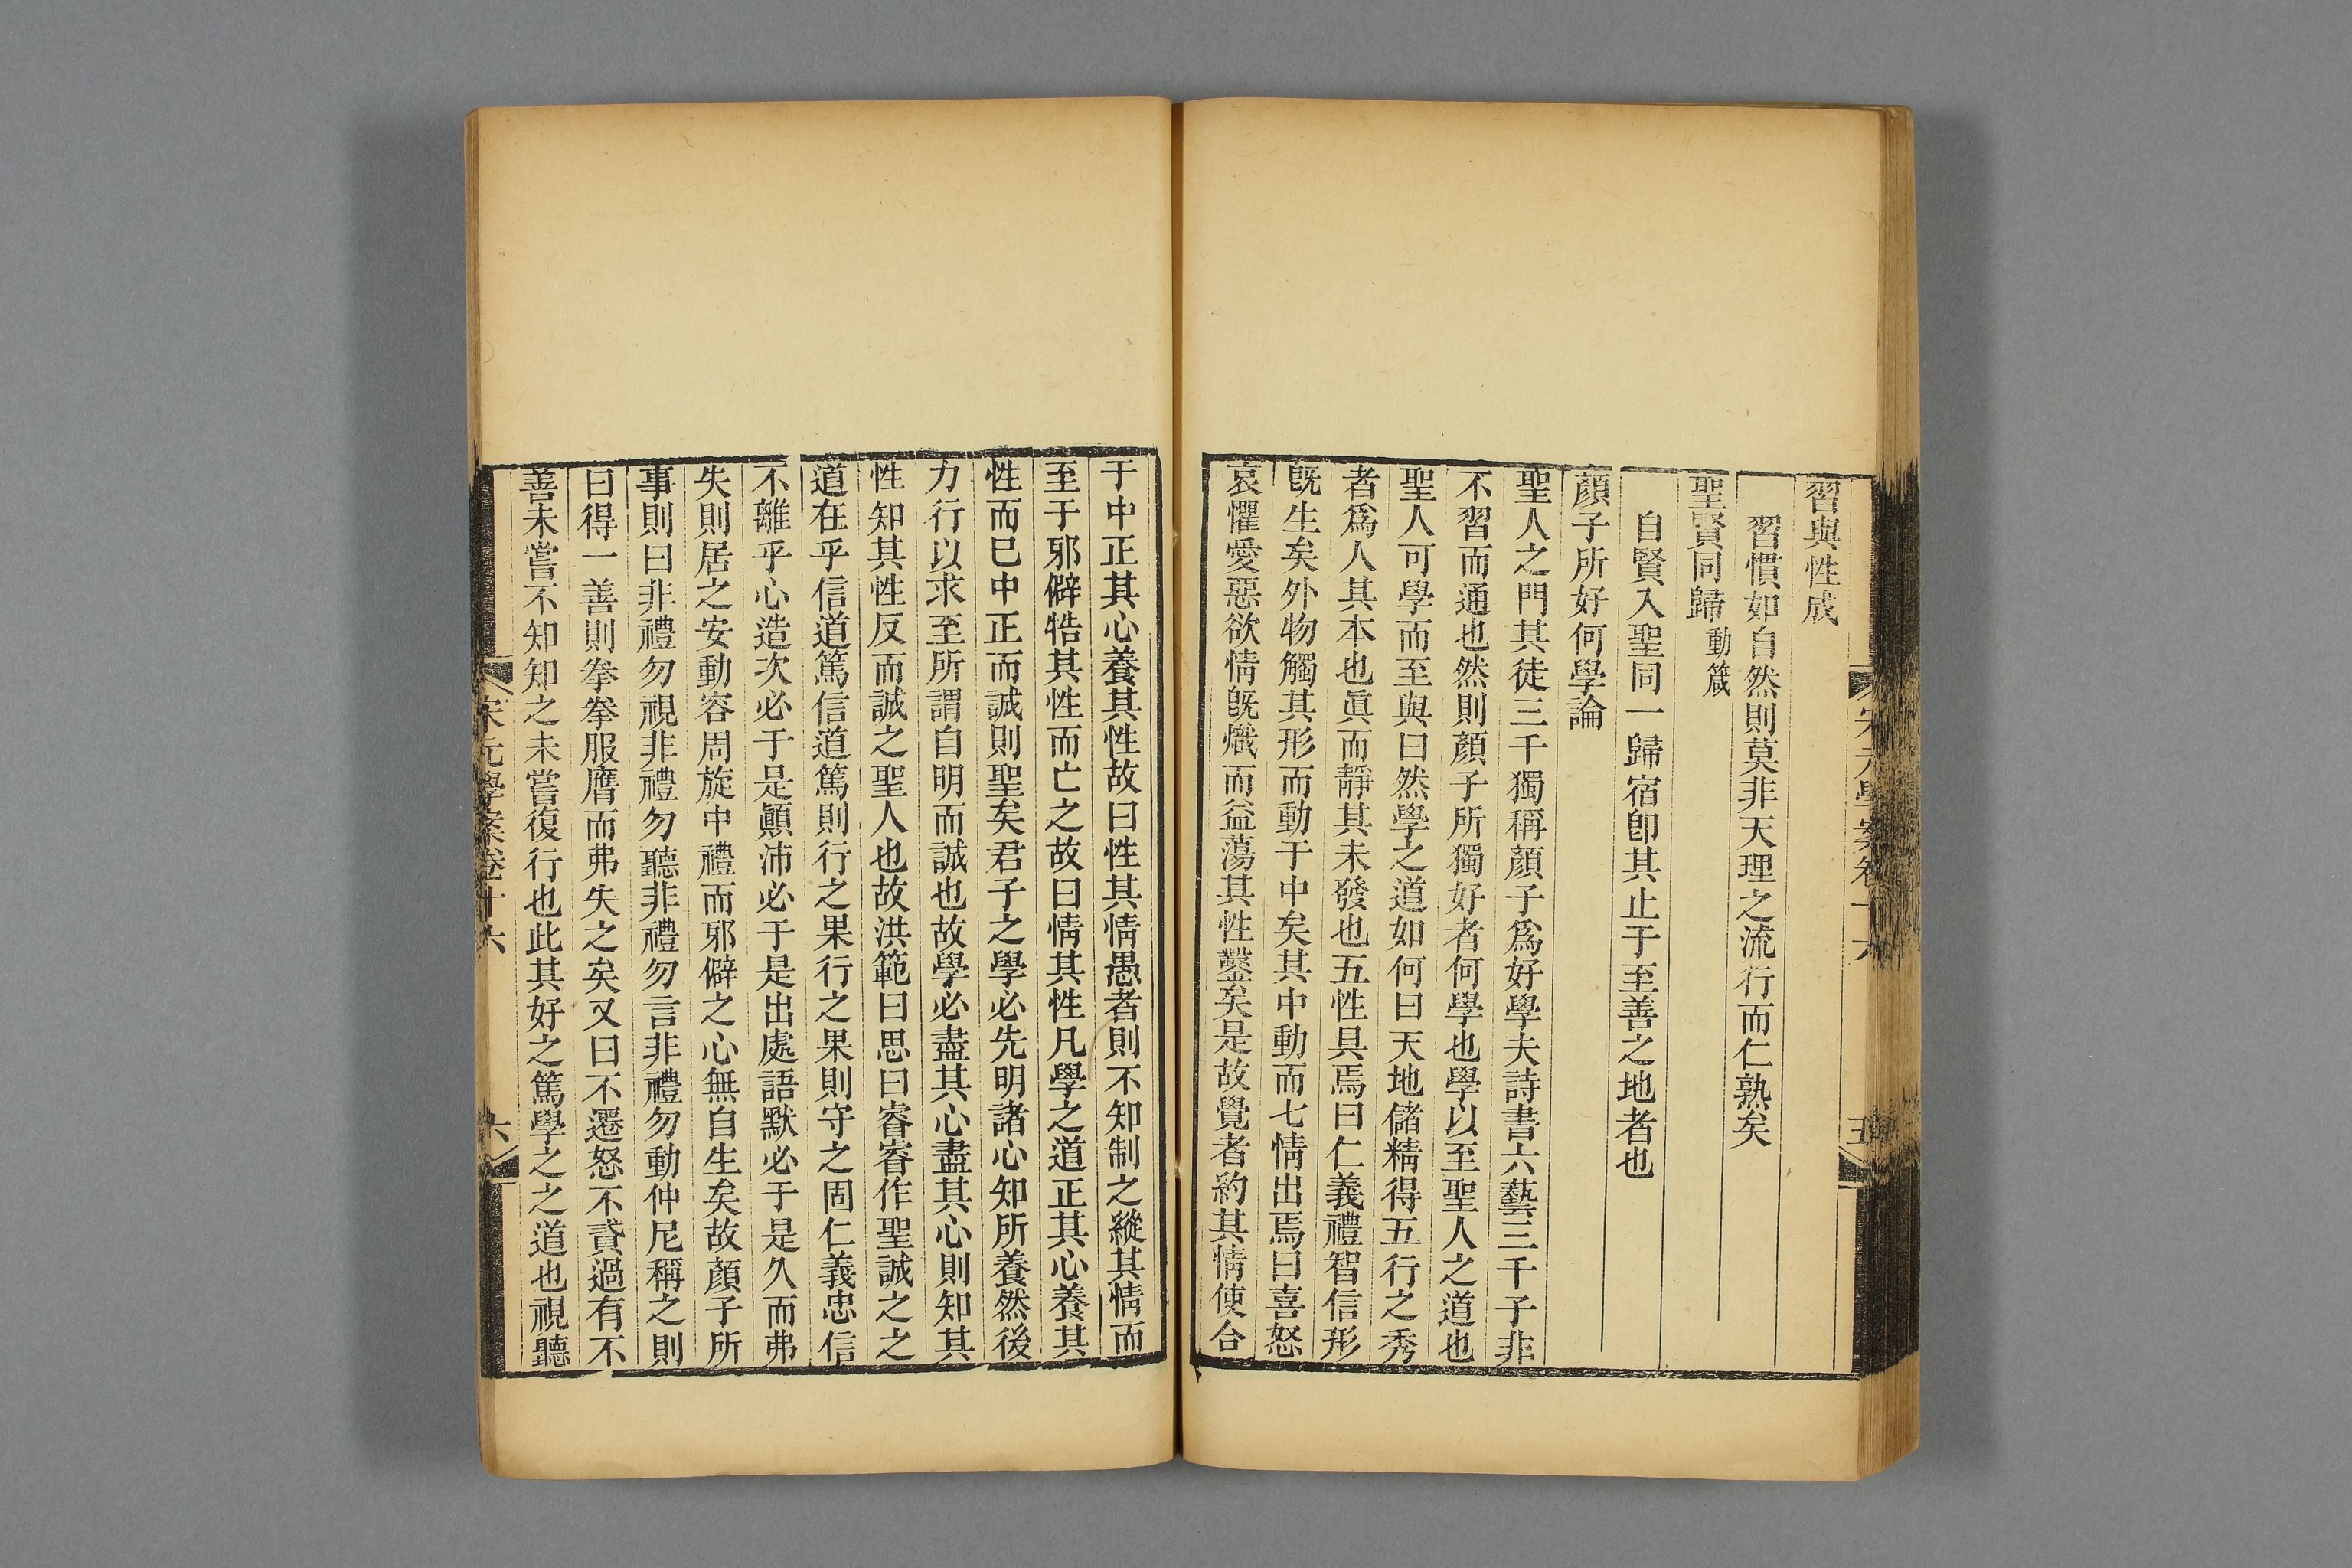 宋元學案卷十六
五
習與性成
習慣如自然則莫非天理之流行而仁熟矣
聖賢同歸動箴
自賢入聖同一歸宿卽其止于至善之地者也
顏子所好何學論
聖人之門其徒三千獨稱顏子爲好學夫詩書六藝三千子非
不習而通也然則顏子所獨好者何學也學以至聖人之道也
聖人可學而至與曰然學之道如何曰天地儲精得五行之秀
者爲人其本也眞而靜其未發也五性具焉曰仁義禮智信形
旣生矣外物觸其形而動于中矣其中動而七情出焉曰喜怒
哀懼愛惡欲情旣熾而益蕩其性鑿矣是故覺者約其情使合
于中正其心養其性故曰性其情愚者則不知制之縱其情而
至于邪僻牿其性而亡之故曰情其性凡學之道正其心養其
性而已中正而誠則聖矣君子之學必先明諸心知所養然後
力行以求至所謂自明而誠也故學必盡其心盡其心則知其
性知其性反而誠之聖人也故洪範曰思曰睿睿作聖誠之之
道在乎信道篤信道篤則行之果行之果則守之固仁義忠信
不離乎心造次必于是顚沛必于是出處語默必于是久而弗
失則居之安動容周旋中禮而邪僻之心無自生矣故顏子所
事則曰非禮勿視非禮勿聽非禮勿言非禮勿動仲尼稱之則
曰得一善則拳拳服膺而弗失之矣又曰不遷怒不貳過有不
善未嘗不知知之未嘗復行也此其好之篤學之之道也視聽
宋元學案卷十六
六